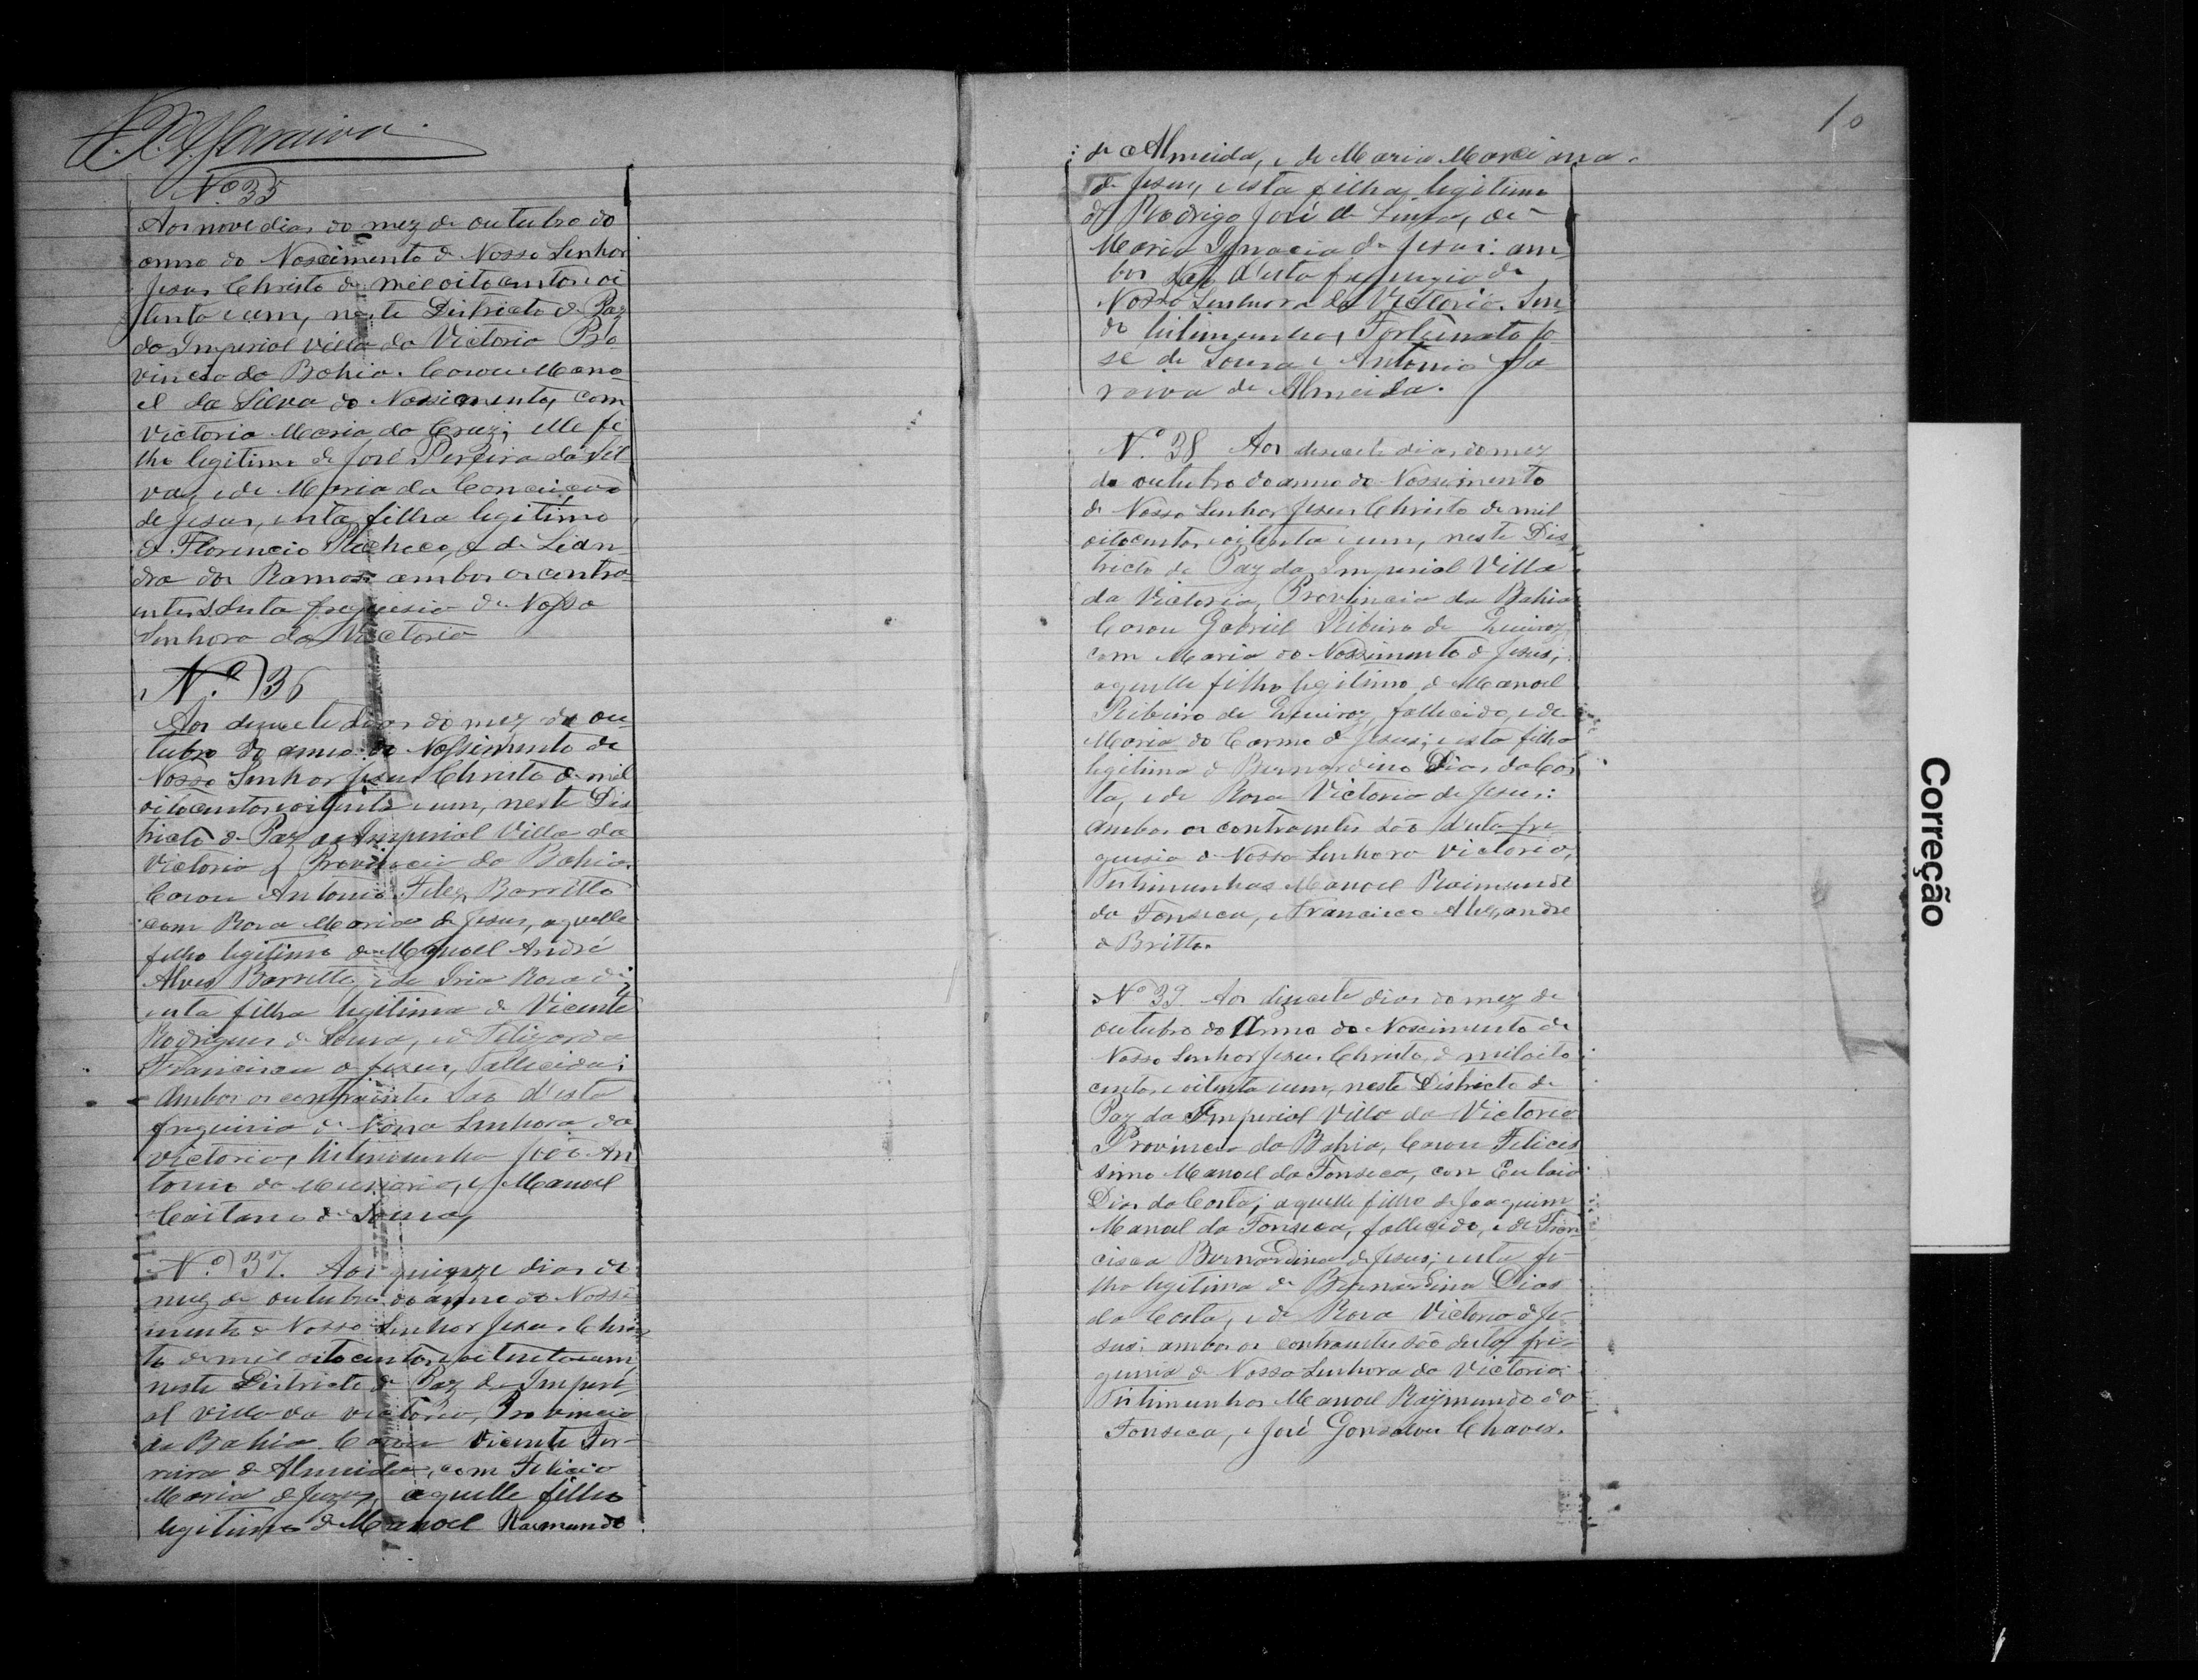 Nº 35
Aos nove dias do mez de outubro do
anno do Nascimento de Nosso Senhor
Jesus Christo de mil oitocentos e oi
tenta e um, neste Districto de Paz
da Imperial villa da Victoria Pro
vincia da Bahia. Casou Mano
el da Silva do Nascimento, com
Victoria Maria da Cruz; elle fi
lho legitimo de José Pereira da Sil
va, e de Maria da Conceição
de Jesus, e esta filha legitima
de Florencio Pacheco, e de Lean
dra dos Ramos: ambos os contra
entes desta freguesia de Nossa
Senhora da Victoria
Nº 36
Aos desecete dias do mez de ou
tubro do anno do Nassimento de
Nosso Senhor Jesus Christo de mil
oitocentos e oitenta e um, neste Dis
tricto de Paz da Imperial Villa da
Victoria, Provincia da Bahia.
Casou Antonio Felex Barretto
com Rosa Maria de Jesus, aquelle
filho legitimo de Manoel André
Alves Barretto, e de Iria Rosa
esta filha legitima de Vicente
Rodrigues de Sousa, e de Felizarda
Francisca de Jesus, Fallecida;
Ambos os contraintes São d'esta
freguisia de Nossa Senhora da
Victoria, An
tonio da e Manoel
Caitano de Sousa,
Nº 37. Aos quinze dias do
mez de outubro do anno do Nassi
mento de Nosso Senhor Jesus Chris
to de mil oitocentos e oitenta e um,
neste Districto de Paz da Imperi
al villa da victoria, Provincia
da Bahia. Casou Vicente Fer-
reira de Almeida, com Felicia
Maria de Jesus, aquelle filho
legitimo de Manoel Raimundo
10
de Almeida, e de Maria Marciana
de Jesus, e esta filha legitima
de Rodrigo José de e
Maria Ignacia de Jesus: am
bos São d'esta freguezia de
Nossa Senhora da Victoria. Sen
do Fortunato Jo
sé de Sousa e Antonio Sa
raiva de Almeida.
Nº 38 Aos desecete dias do mez
de outubro do anno do Nassimento
de Nosso Senhor Jesus Christo de mil
oitocentos e oitenta e um, neste Dis
tricto de Paz da Imperial Villa
da Victoria, Provincia da Bahia
Casou Gabriel Ribeiro de Queiroz,
com Maria do Nassimento de Jesus;
aquelle filho legitimo de Manoel
Ribeiro de Queiroz, fallecido, e de
Maria do Carmo de Jesus; e esta filha
legitima de Bernardino Dias da Cos
ta, e de Rosa Victoria de Jesus:
Ambos os contraentes são d'esta fre
guisia de Nossa Senhora Victoria,
Tistimunhas Manoel Raimundo
da Fonseca, e Francisco Alexandre
de Britto.
Nº 39. Aos dizecete dias do mez de
outubro do Anno do Nascimento de
Nosso Senhor Jesus Christo, de mil oito
centos e oitenta e um, neste Districto de
Paz da Imperial Villa da Victoria
Provincia da Bahia, Casou Felicis
simo Manoel da Fonseca, com Eulaia
Dias da Costa; aquelle filho de Joaquim
Manoel da Fonseca, fallecido, e de Fran
cisca Bernardina de Jesus; e esta fi-
lha legitima de Bernardino Dias
da Costa, e de Rosa Victoria de Je-
sus: ambos os contraentes são desta fre-
guesia de Nossa Senhora da Victoria;
Tistimunhas Manoel Raymundo da
Fonseca, e José Gonsalves Chaves.
Correção